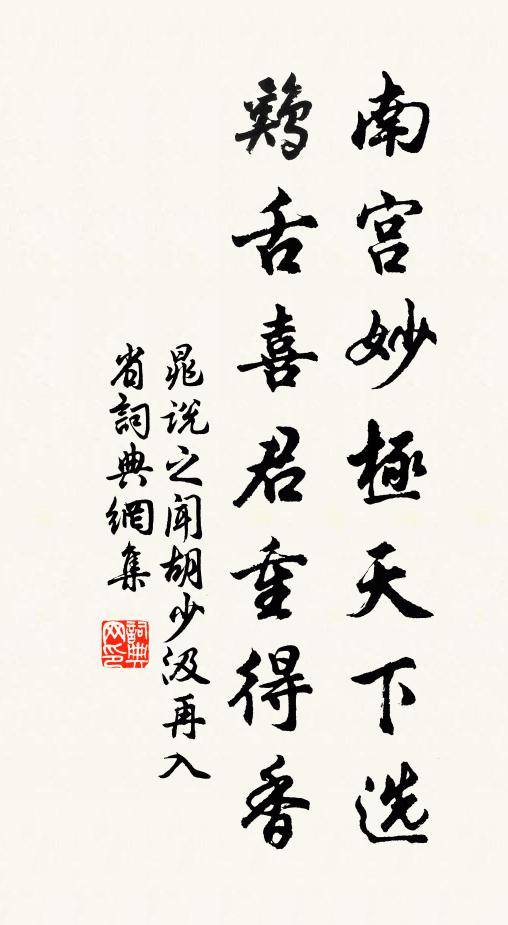 南宫妙極天下选
鷄舌喜君重得香
晁说之闻胡少汲再入
省詞典網集
詞典网印